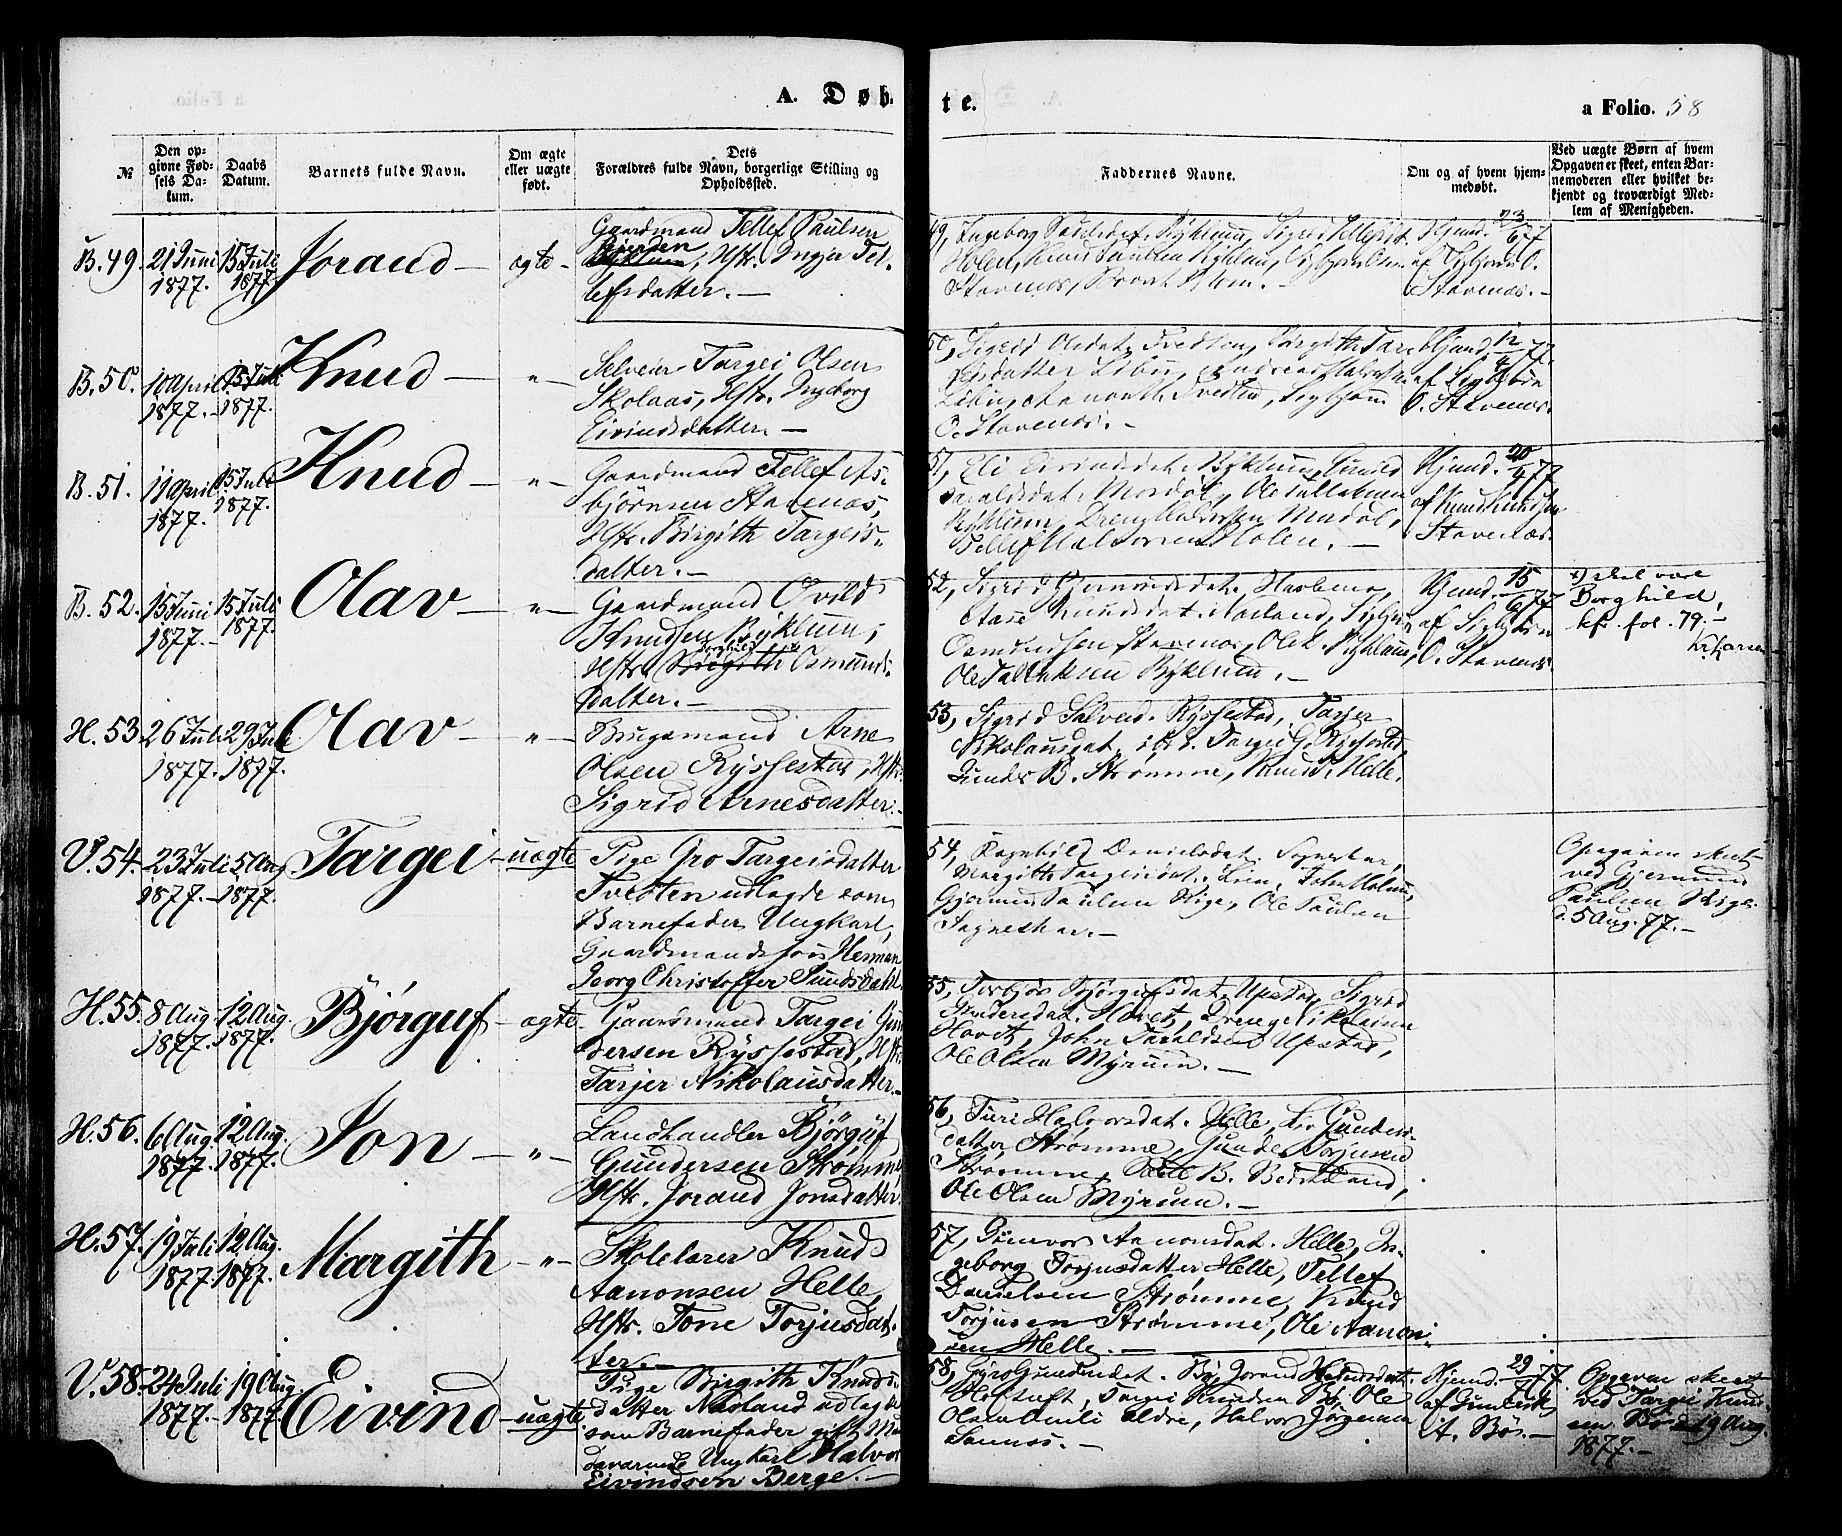 A. Døb-
te.
a Folio. 58
№
Den op-
givne Fød-
sels Da-
tum.
Daabs
Datum.
Barnets fulde Navn.
Om ægte
eller uægte
født.
Dets
Forældres fulde Navn, borgerlige Stilling og
Opholdssted.
Faddernes Navne.
Om og af hvem hjem-
medøbt.
Ved uægte Børn af hvem
Opgaven er skeet, enten Bar-
nemoderen eller hvilket be-
kjendt og troværdigt Med-
lem af Menigheden.
B. 49.
21 Juni
1877.
15 Juli
1877.
Jorand
ægte
Gaardmand Tellef Paulsen
Bjorden
, Hstr. Inger Tel-
lefsdatter.
49, Ingeborg Paulsdat. Byklum, Sigrid Tellefsd.
Holen, Knud Paulsen Byklum,
Stavenes,
Hjemd. 23/6 77
af Sigbjørn O.
Stavenes.
B. 50.
10 April
1877.
15 Juli
1877.
Knud
"
Selveier Targei Olsen
Skolaas, Hstr. Ingeborg
Eivindsdatter.
50, Sigrid Olsdat.
O. Stavenes.
Hjemd. 12/4 77
af Sigbjørn
O. Stavenes.
B. 51.
11 April
1877.
15 Juli
1877.
Knud
"
Gaardmand Tellef As-
bjørnsen Stavenes,
Hstr. Birgith Targeis-
datter.
51, Eli Eivindsdat. Byklum, Gunild
Haraldsdat. Mosdøl, Ole Tallaksen
Byklum, Dreng Halvorsen Mosdøl,
Tellef Halvorsen Holen.
Hjemd. 20/4 77
af Knud Knudsen
Stavenes.
B. 52.
15 Juni
1877.
15 Juli
1877.
Olav
"
Gaardmand Øvild
Knudsen Byklum,
Hstr. Birgith Borghild x) Osmunds-
datter.
52, Sigrid Gjermundsdat.
Aase Knudsdat.
Osmundsen Stavenes, Ole K. Byklum,
Ole Tallaksen Byklum.
Hjemd. 15/6 77
af Sigbjørn
O. Stavenes.
x) skal være
Borghild,
kfr. fol. 79.
Kr. Larsen
H. 53.
26 Juli
1877.
29 Juli
1877.
Olav
"
Brugsmand Arne
Olsen Rysstad, Hstr.
Sigrid Arnesdatter.
53, Sigrid Salvesd. Ryssestad, Tarjer
Nikolausdat. ibid. Targei G. Ryssestad,
Gunder B. Strømme, Knud Helle.
V. 54.
23 Juli
1877.
5 Aug.
1877.
Targei
uægte
Pige Gro Targeisdatter
Tveiten udlagde som
Barnefader Ungkarl,
Gaardmandssøn Herman
Georg Christoffer Sundsdahl
54, Ragnhild Danielsdat.
Margith Targeisdat.
Gjermund Paulsen Rige, Ole Paulsen
Sagneskar.
Opgaven skeet
ved Gjermund
Paulsen Rige
d. 5 Aug. 77.
H. 55.
8 Aug.
1877.
12 Aug.
1877.
Bjørguf
ægte
Gaardmand Targei Gun-
dersen Ryssestad, Hstr.
Tarjer Nikolausdatter.
55, Torbjør Bjørgufsdat. Upstad, Sigrid
Gundersdat. Hovet, Dreng Nikolaisen
Hovet, John Taraldsen Upstad,
Ole Olsen Myrum.
H. 56.
6 Aug.
1877.
12 Aug.
1877.
Jon
"
Landhandler Bjørguf
Gundersen Strømme,
Hstr. Jorand Jonsdatter.
56, Turi Halvorsdat. Helle, Liv Gunders-
datter Strømme, Gunder Torjusen
Strømme, B. Besteland,
Ole Olsen Myrum.
H. 57.
19 Juli
1877.
12 Aug.
1877.
Margith
"
Skolelærer Knud
Aanonsen Helle,
Hstr. Tone Torjusdat-
ter.
57, Gunvor Aanonsdat. Helle, In-
geborg Torjusdatter Helle, Tellef
Danielsen Strømme, Knud
Torjusen Strømme, Ole Aanon-
sen Helle.
V. 58.
24 Juli
1877.
19 Aug.
1877.
Eivind
uægte
Pige Birgith Knuds-
datter Nasland udlagde
som Barnefader
Ungkarl Halvor
Eivindsen Berge.
58, Gyro Gundersdat. Bø, Jorand
Targei Knudsen Bø, Ole
Olsen
Hjemd. 29/7 77.
af Gunder
A. Bø.
Opgaven skeet
ved Targei Knud-
sen Bø d. 19 Aug.
1877.